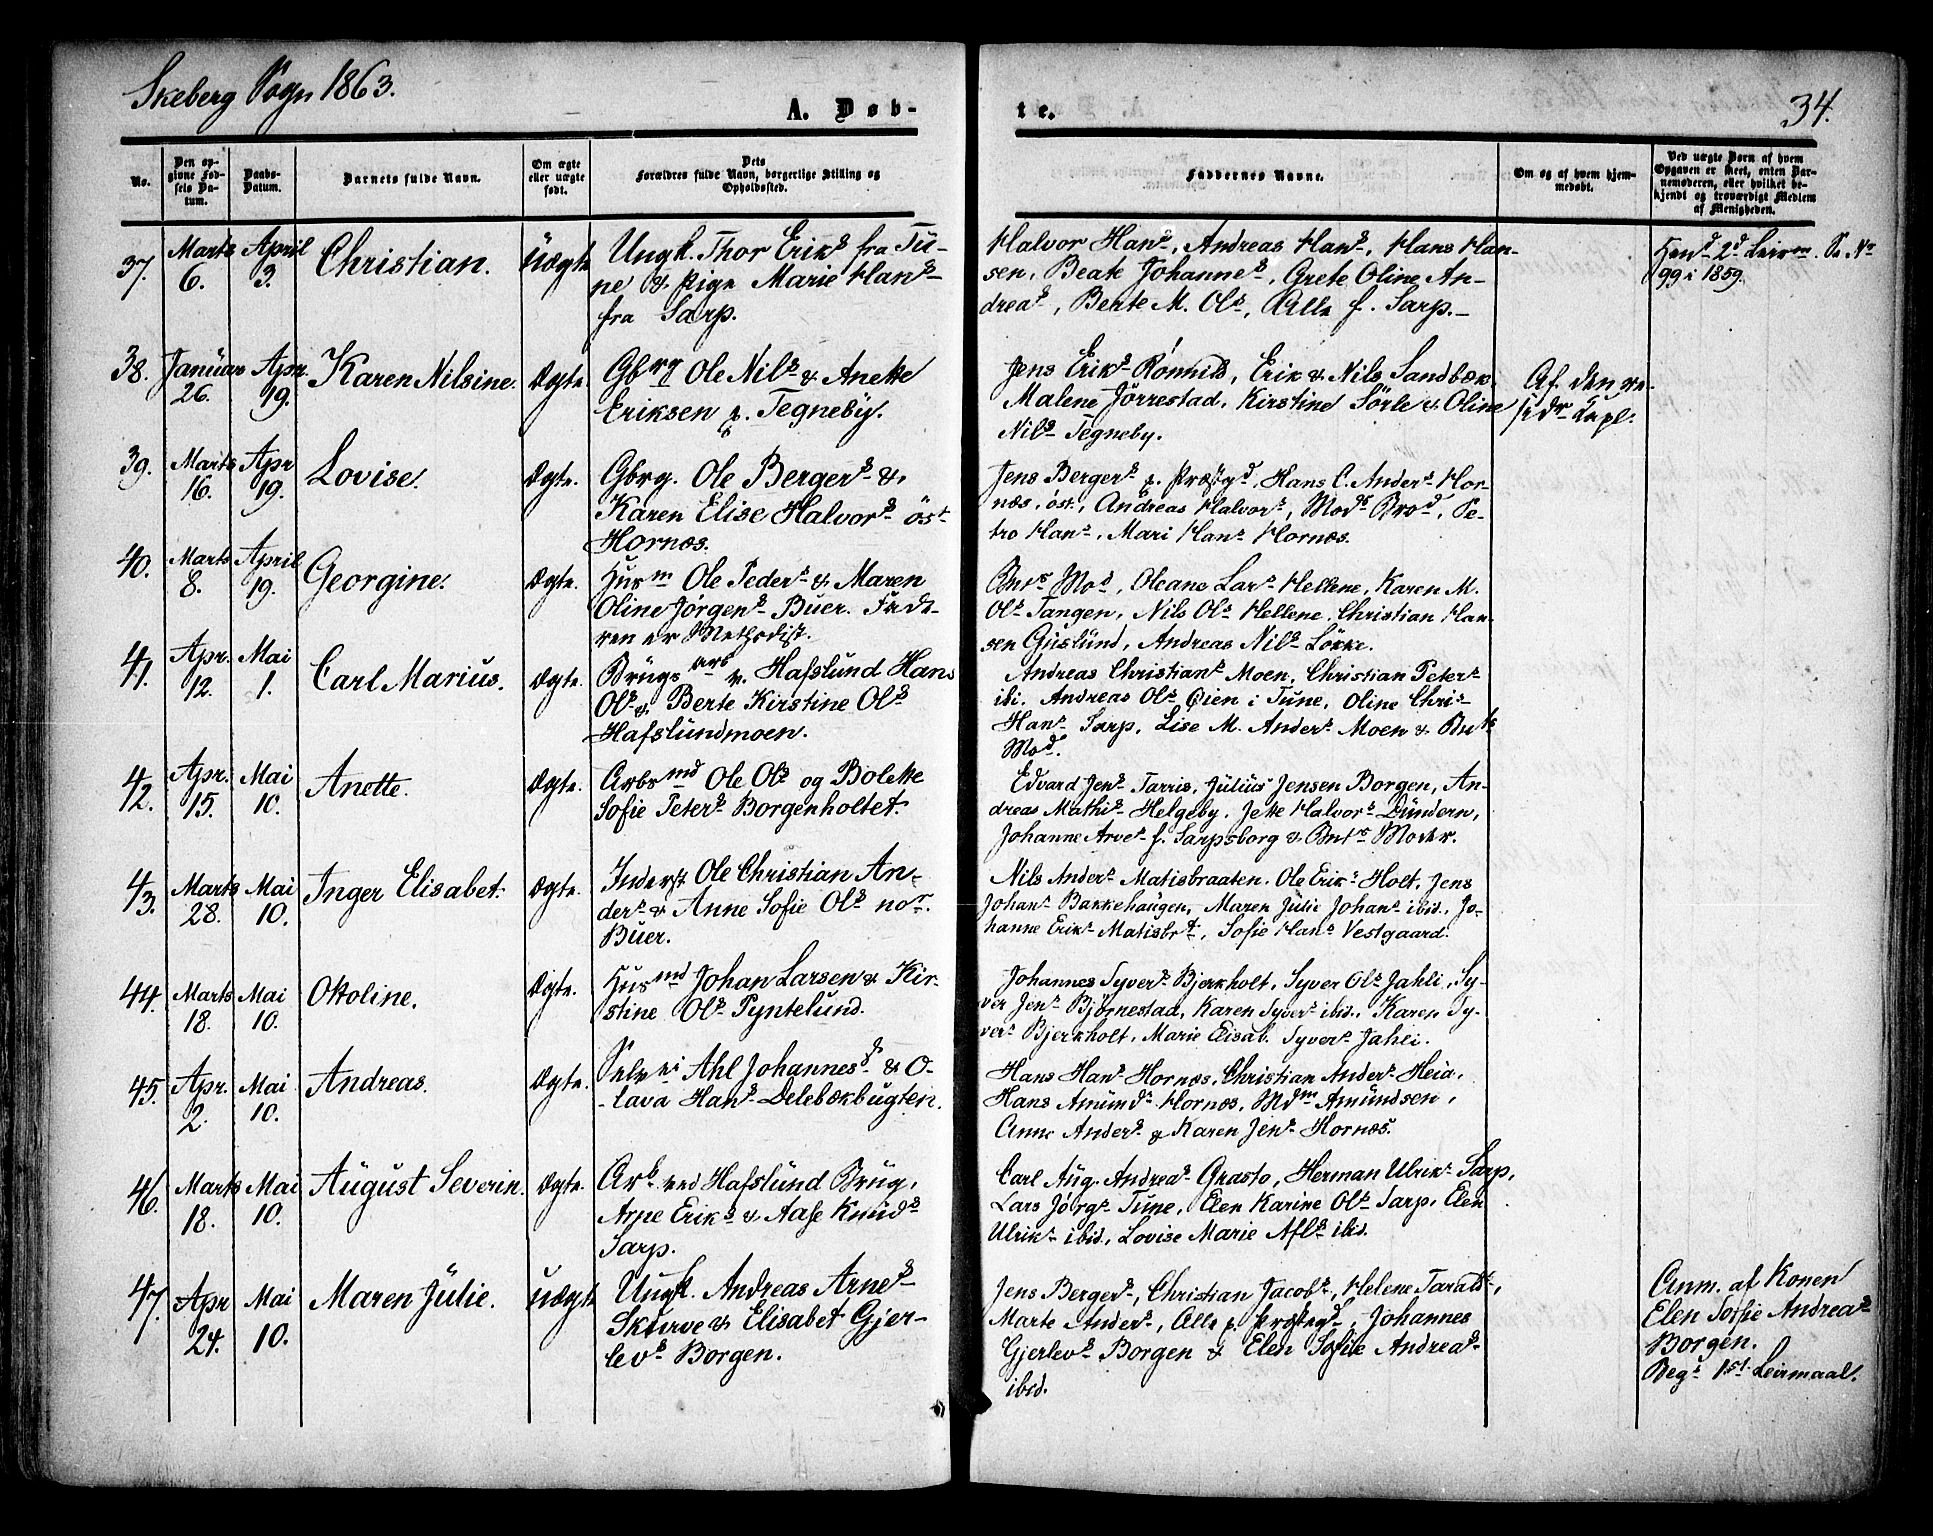 Skeberg Sogn 1863.
34.
A. Døb-
te.
No.
Den op-
givne Fød-
sels Da-
tum.
Daabs-
Datum.
Barnets fulde Navn.
Om ægte
eller uægte
født.
Dets
Forældres fulde Navn, borgerlige Stilling og
Opholdssted.
Faddernes Navne.
Om og af hvem hjem-
medøbt.
Ved uægte Børn af hvem
Opgaven er skeet, enten Bar-
nemoderen, eller hvilket be-
kjendt og troværdigt Medlem
af Menigheden.
37. Marts 6. April 3. Christian. Uægte
Ungk. Thor Eriks fra Tu-
ne & Pige Marie Hans
fra Sarp.
Halvor Hans, Andreas Hans, Hans Han-
sen, Beate Johannes, Grete Oline An-
dreas, Berte M. Ols, Alle f. Sarp.
2d Leierm. Se No
99 i 1859.
38. Januar 26. Apr. 19. Karen Nilsine. Ægte.
Gbrg Ole Nils & Anette
Eriksen p. Tegneby.
Jens Eriks Rømnes, Erik & Nils Sandbæk
Malene Jørrestad, Kirstine Sørle & Oline
Nils Tegneby.
Af den re-
sidr Kapl.
39. Marts 16. Apr 19. Lovise. Ægte.
Gbrg. Ole Bergers &
Karen Elise Halvors öst
Hornæs.
Jens Bergers p. Præstgd, Hans C. Anders Hor-
næs, öst., Andreas Halvors, Mods Brod, Pe-
tro Hans, Mari Hans Hornæs.
40. Marts 8. April 19. Georgine. Ægte.
Husm Ole Peders & Maren
Oline Jørgens Buer. Fade-
ren er Methodist.
Bnts Mod, Oleane Lars Hellene, Karen M.
Ols Tangen, Nils Ols Hellene, Christian Han-
sen Guslund, Andreas Nils Løkke.
41. Apr. 12. Mai 1. Carl Marius. Ægte.
Brugsarb v. Hafslund Hans
Ols & Berte Kirstine Ols
Hafslundmoen.
Andreas Christians Moen, Christian Peters
ibi. Andreas Ols Øien i Tune, Oline Chris-
Hans Sarp, Lise M. Anders Moen & Bnts
Mod.
42. Apr. 15. Mai 10. Anette. Ægte.
Arbsmd Ole Ols og Bolette
Sofie Peters Borgenholtet.
Edvard Jens Tarris, Julius Jensen Borgen, An-
dreas Mathis Helgeby, Jette Halvors Dundern,
Johanne Arves f. Sarpsborg & Bnts Moder.
43. Marts 28. Mai 10. Inger Elisabet. Ægte.
Inderst Ole Christian An-
ders & Anne Sofie Ols nor.
Buer.
Nils Anders Matisbraaten, Ole Eriks Holt, Jens
Johans Bakkehaugen, Maren Julie Johans ibid., Jo-
hanne Eriks Matisbrt, Sofie Hans Vestgaard.
44. Marts 18. Mai 10. Ottoline. Ægte.
Husmd Johan Larsen & Kir-
stine Ols Pyntelund.
Johannes Syvers Bjerkholt, Syver Ols Jahli, Sy-
ver Jens Bjørnestad, Karen Syvers ibid., Karen Sy-
vers Bjerkholt, Marie Elisab. Syvers Jahli.
45. Apr. 2. Mai 10. Andreas. Ægte.
Selvei Ahl Johannes & O-
lava Hans Delebækbugten.
Hans Hans Hornæs, Christian Anders Heia,
Hans Amunds Hornæs, Mdm Amundsen,
Anne Anders & Karen Jens Hornæs.
46. Marts 18. Mai 10. August Severin. Ægte.
Arb ved Hafslund Brug,
Arne Eriks & Aase Knuds
Sarp.
Carl Aug. Andreas Grasto, Herman Ulriks Sarp,
Lars Jørgs Tune, Elen Karine Ols Sarp, Elen
Ulriks ibid., Lovise Marie Afls ibid.
47. Apr 24. Mai 10. Maren Julie. Uægte
Ungk. Andreas Arnes
Skurve & Elisabet Gjer-
levs Borgen.
Jens Bergers, Christian Jacobs, Helene Taralds,
Marte Anders, Alle p. Prstgrd, Johannes
Gjerlevs Borgen & Elen Sofie Andreas
ibid.
Anm. af Konen
Elen Sofie Andreas
Borgen.
Begs 1st Leiermaal.